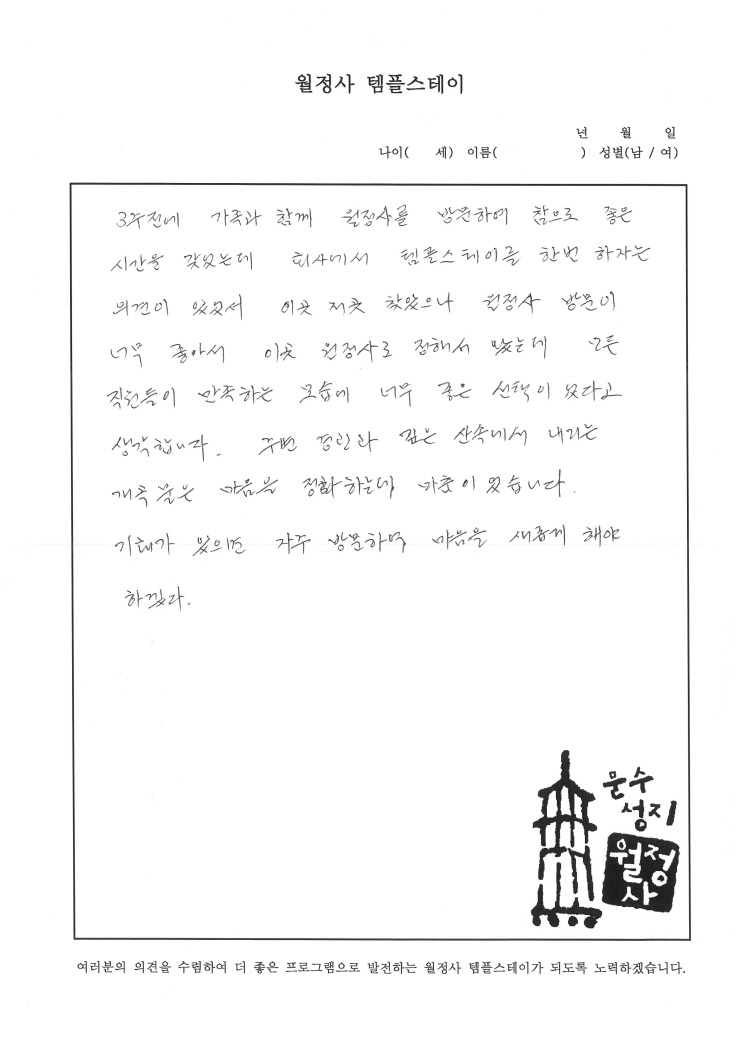 월정사 템플스테이
년 월 일
나이( 세) 이름( ) 성별(남 / 여)
3주전에 가족과 함께 월정사를 방문하여 참으로 좋은
시간을 갖었는데 회사에서 템플스테이를 한번 하자는
의견이 있었서 이곳 저곳 찾았으나 월정사 방문이
너무 좋아서 이곳 월정사로 정해서 왔는데 모든
직원들이 만족하는 모습에 너무 좋은 선택이 였다고
생각합니다. 주변 경관과 깊은 산속에서 내리는
계곡 물은 마음을 정화하는데 마춤이 였습니다.
기회가 있으면 자주 방문하여 마음을 새롭게 해야
하겠다.
문수
성지
월정
사
여러분의 의견을 수렴하여 더 좋은 프로그램으로 발전하는 월정사 템플스테이가 되도록 노력하겠습니다.